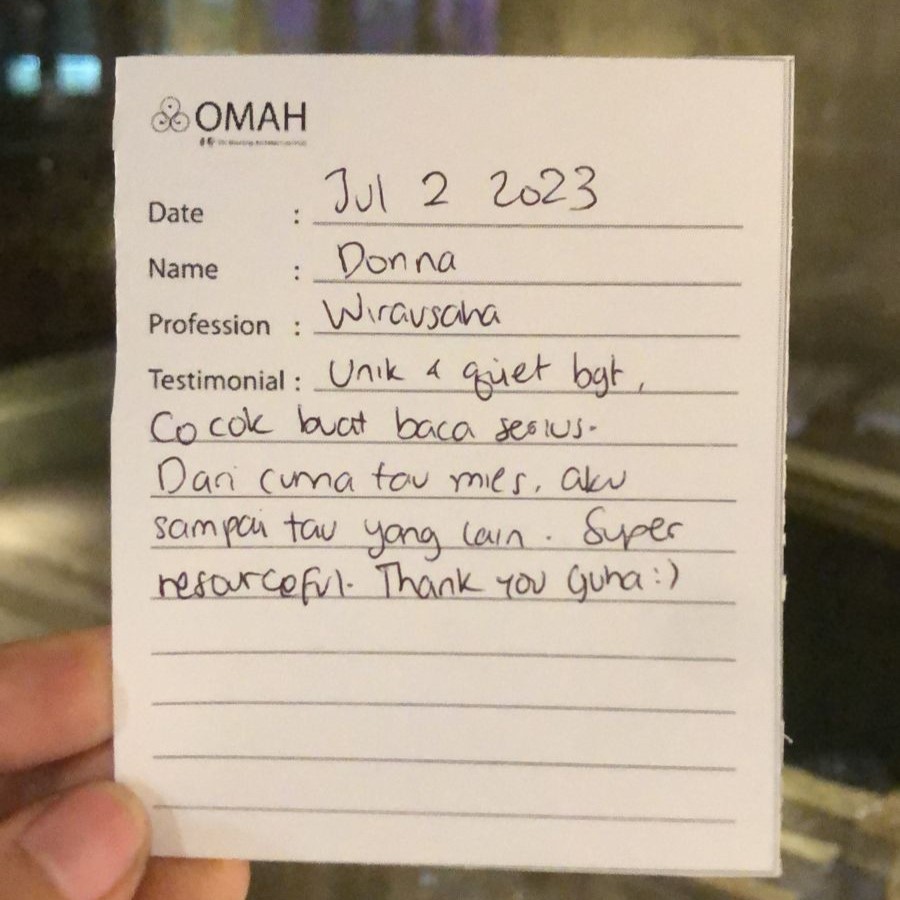 OMAH
Date : Jul 2 2023
Name : Donna
Profession : Wirausaha
Testimonial : Unik & quiet bgt,
Cocok buat baca serius.
Dari cuma tau mies, aku
sampai tau yang lain. Super
resourceful. Thank you Guha :)